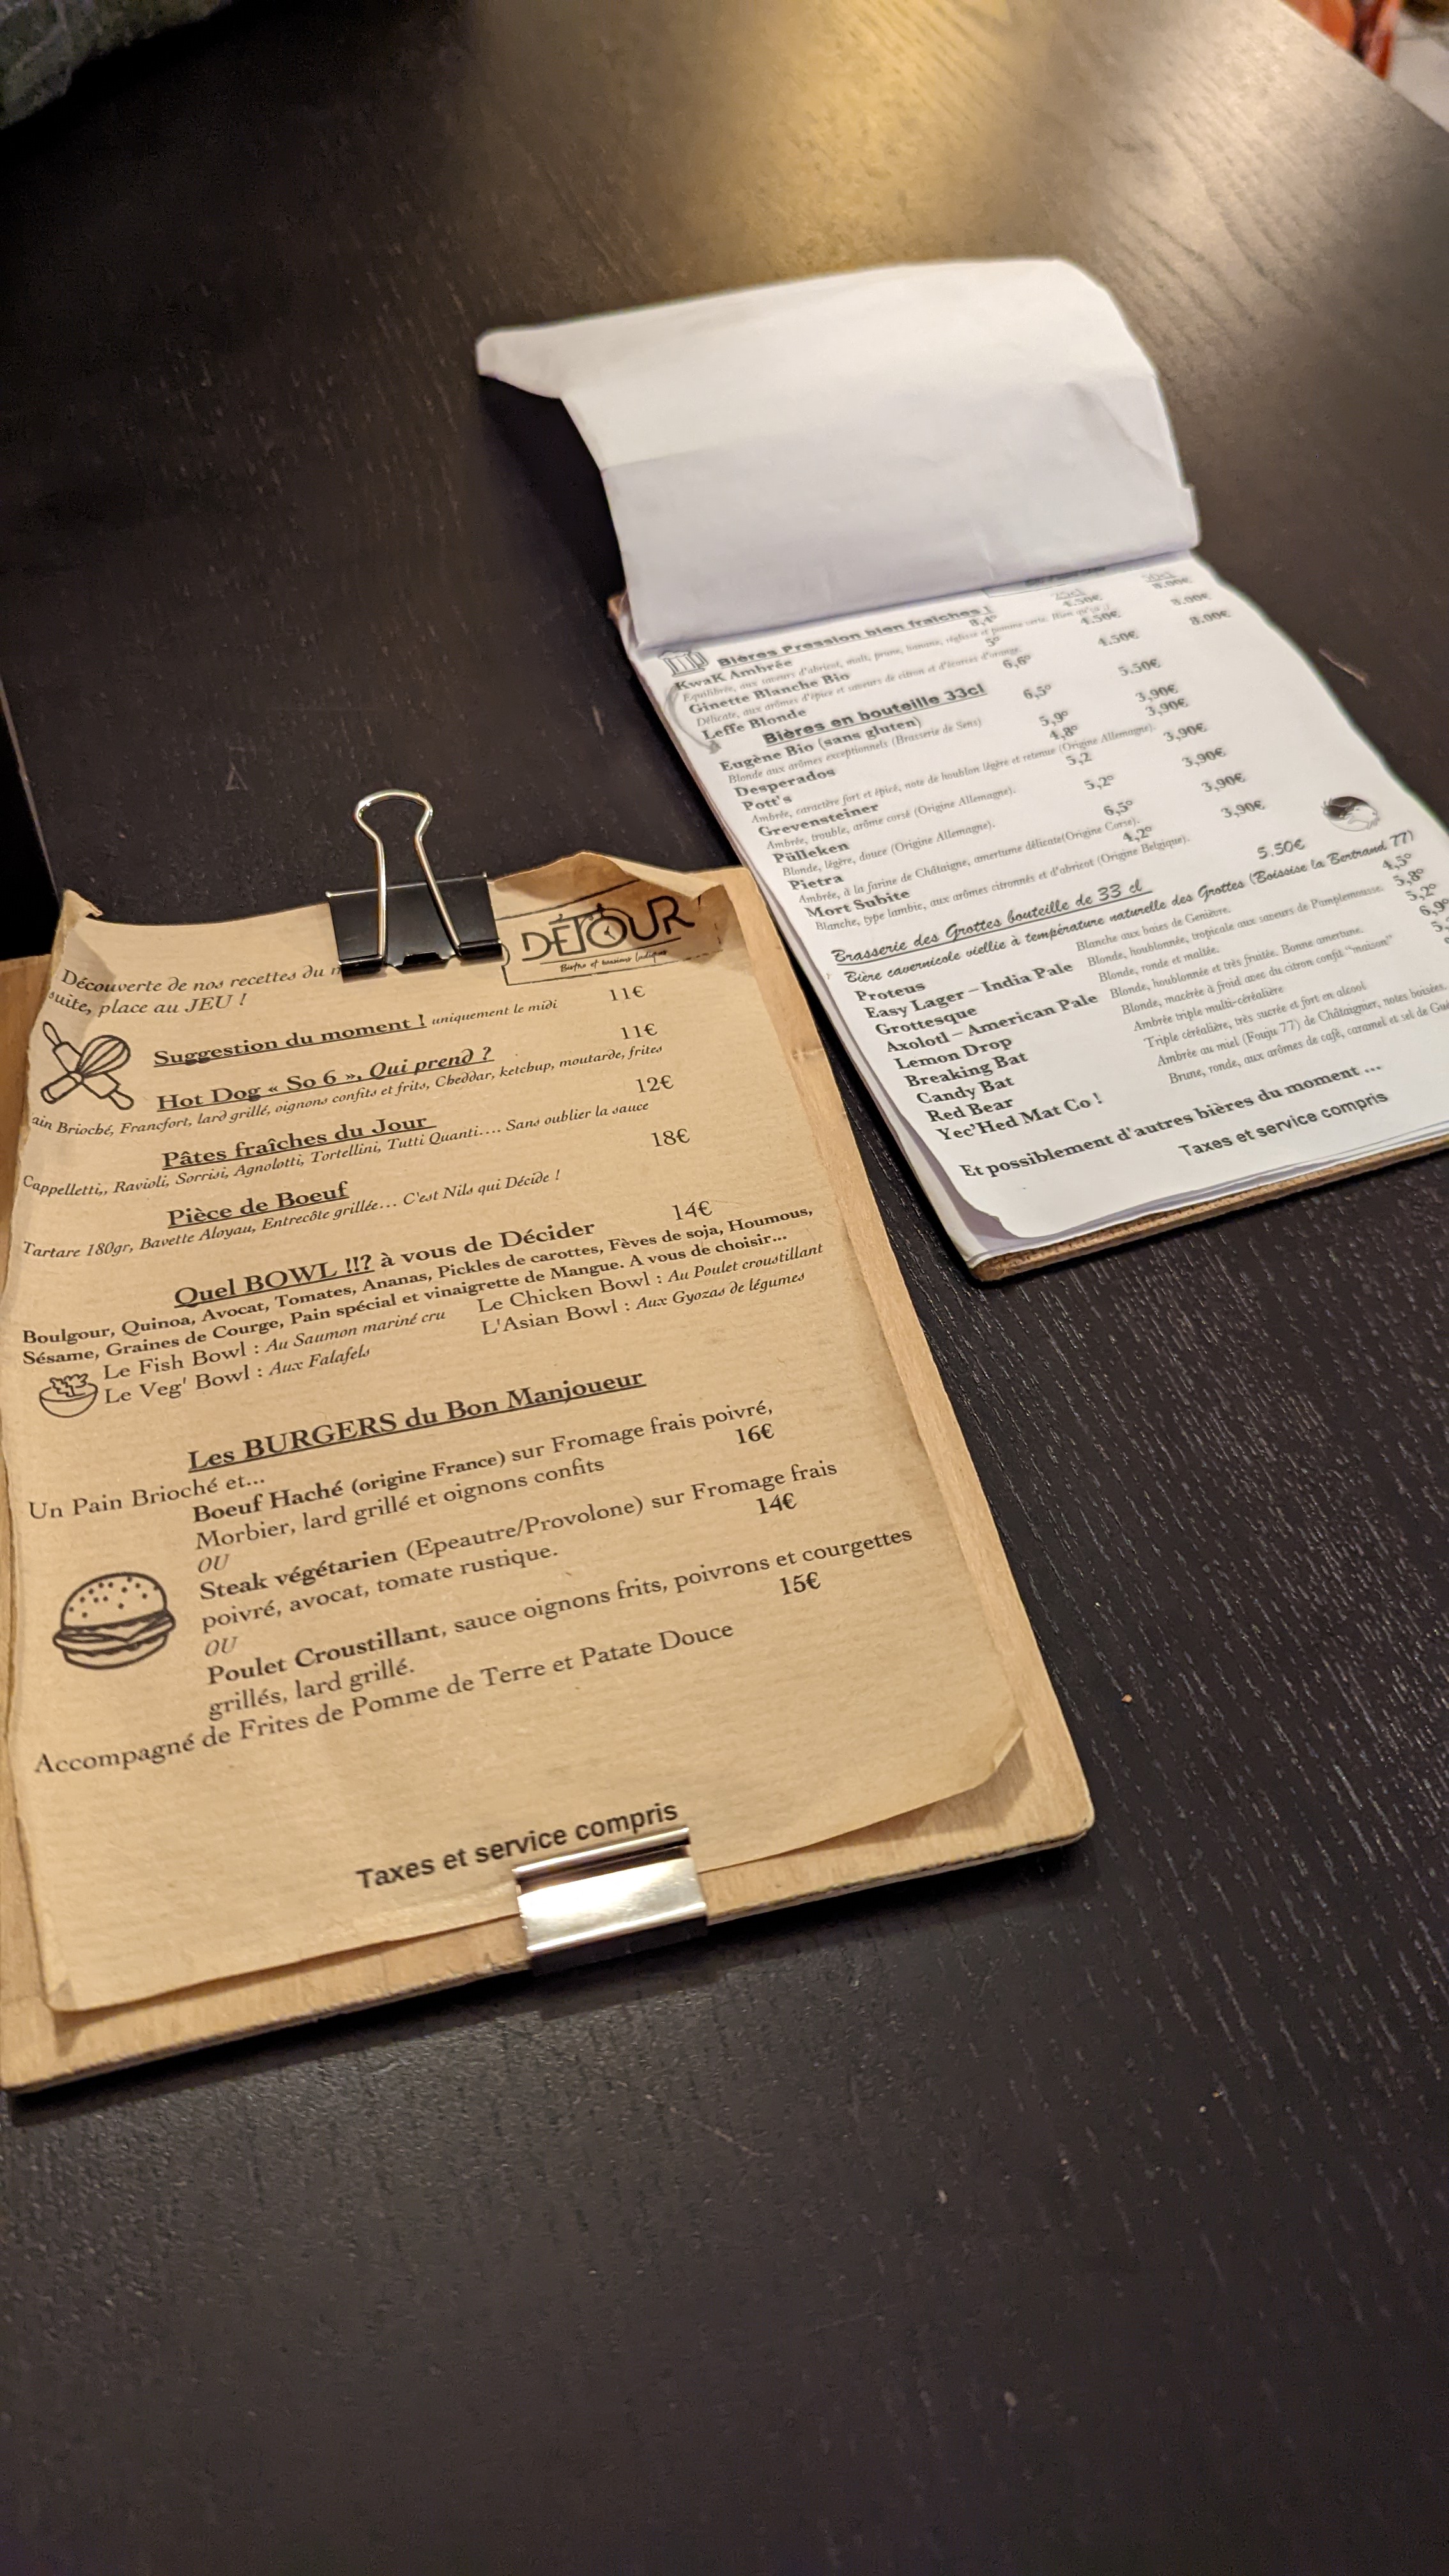 DÉTOUR
Découverte de nos recettes du
suite, place au JEU !
Suggestion du moment ! uniquement le midi 11€
Hot Dog « So 6 », Qui prend ? 11€
ain Brioché, Francfort, lard grillé, oignons confits et frits, Cheddar, ketchup, moutarde, frites
Pâtes fraîches du Jour 12€
Cappelletti,, Ravioli, Sorrisi, Agnolotti, Tortellini, Tutti Quanti.... Sans oublier la sauce
Pièce de Boeuf 18€
Tartare 180gr, Bavette Aloyau, Entrecôte grillée... C'est Nils qui Décide !
Quel BOWL !!? à vous de Décider 14€
Boulgour, Quinoa, Avocat, Tomates, Ananas, Pickles de carottes, Fèves de soja, Houmous,
Sésame, Graines de Courge, Pain spécial et vinaigrette de Mangue. A vous de choisir...
Le Fish Bowl : Au Saumon mariné cru Le Chicken Bowl : Au Poulet croustillant
Le Veg' Bowl : Aux Falafels L'Asian Bowl : Aux Gyozas de légumes
Les BURGERS du Bon Manjoueur
Un Pain Brioché et...
Boeuf Haché (origine France) sur Fromage frais poivré,
Morbier, lard grillé et oignons confits 16€
OU
Steak végétarien (Epeautre/Provolone) sur Fromage frais
poivré, avocat, tomate rustique. 14€
OU
Poulet Croustillant, sauce oignons frits, poivrons et courgettes
grillés, lard grillé. 15€
Accompagné de Frites de Pomme de Terre et Patate Douce
Taxes et service compris
Bières Pression bien fraîches !
KwaK Ambrée 8,4° 4.50€ 8.00€
Equilibrée, aux saveurs d'abricot, malt, prune, banane, réglisse et pomme verte.
Ginette Blanche Bio 5° 4.50€ 8.00€
Délicate, aux arômes d'épice et saveurs de citron et d'écorces d'orange
Leffe Blonde 6,6° 4.50€ 8.00€
Bières en bouteille 33cl
Eugène Bio (sans gluten) 6,5° 5.50€
Blonde aux arômes exceptionnels (Brasserie de Sens)
Desperados 5,9° 3,90€
Pott's 4,8° 3,90€
Ambrée, caractère fort et épicé, note de houblon légère et retenue (Origine Allemagne).
Grevensteiner 5,2 3,90€
Ambrée, trouble, arôme corsé (Origine Allemagne).
Pülleken 5,2° 3,90€
Blonde, légère, douce (Origine Allemagne).
Pietra 6,5° 3,90€
Ambrée, à la farine de Châtaigne, amertume délicate(Origine Corse).
Mort Subite 4,2° 3,90€
Blanche, type lambic, aux arômes citronnés et d'abricot (Origine Belgique).
Brasserie des Grottes bouteille de 33 cl 5.50€
Bière cavernicole viellie à température naturelle des Grottes (Boissise la Bertrand 77)
Proteus Blanche aux baies de Genièvre. 4,5°
Easy Lager – India Pale Blonde, houblonnée, tropicale aux saveurs de Pamplemousse. 5,8°
Grottesque Blonde, ronde et maltée. 5,2°
Axolotl – American Pale Blonde, houblonnée et très fruitée. Bonne amertume. 6,9°
Lemon Drop Blonde, macérée à froid avec du citron confit "maison"
Breaking Bat Ambrée triple multi-céréalière
Candy Bat Triple céréalière, très sucrée et fort en alcool
Red Bear Ambrée au miel (Fouju 77) de Châtaignier, notes boisées.
Yec'Hed Mat Co ! Brune, ronde, aux arômes de café, caramel et sel de
Et possiblement d'autres bières du moment ...
Taxes et service compris